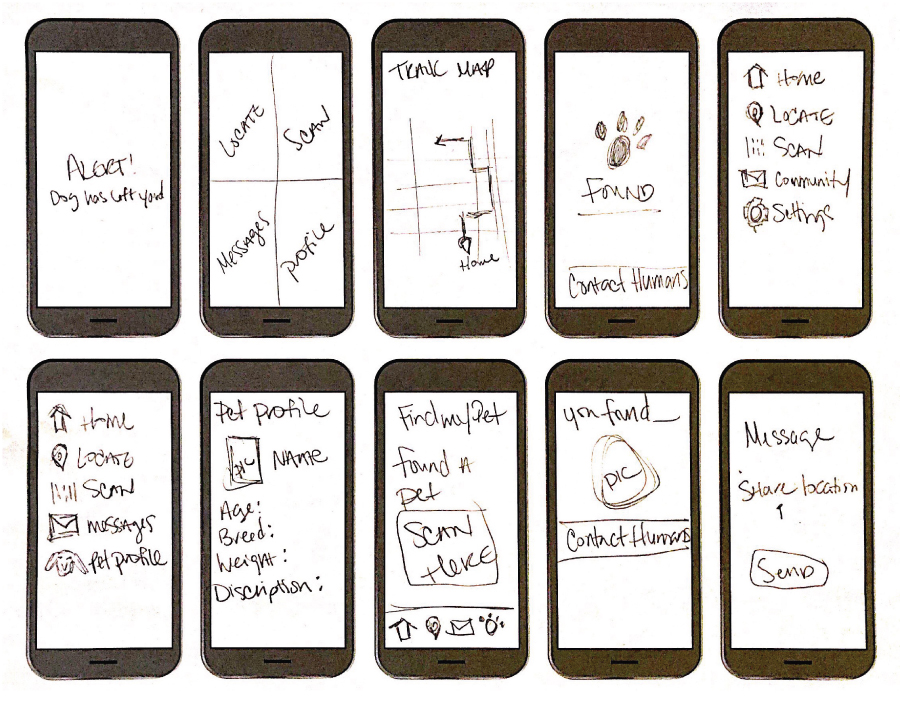 ALERT!
Dog has left yard
LOCATE
SCAN
MESSAGES
profile
TRAIL MAP
Home
FOUND
Contact Humans
Home
LOCATE
SCAN
Community
Settings
Home
LOCATE
SCAN
messages
Pet profile
Pet profile
PIC
NAME
Age:
Breed:
Weight:
Discription:
Find my Pet
found A
pet
SCAN
HERE
you found_
PIC
Contact Humans
Message
Share location
SEND